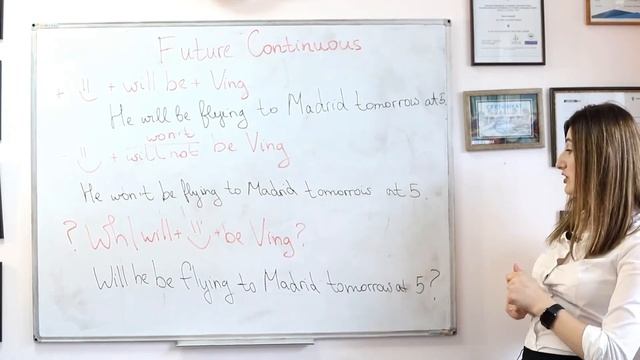 Future Continuous
+ + will be + Ving
He will be flying to Madrid tomorrow at 5.
won't
- + will not be Ving
He won't be flying to Madrid tomorrow at 5.
? Wh/will + + be Ving?
Will he be flying to Madrid tomorrow at 5?